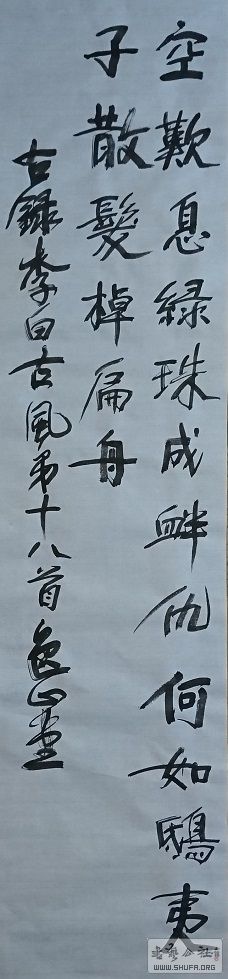 空歎息綠珠成衅仇何如鴟夷
子散髮棹扁舟
古錄李白古風弟十八首
WWW.SHUFA.ORG